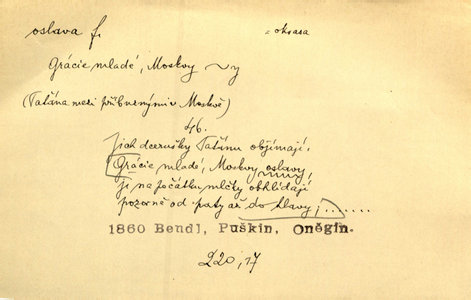 oslava f.
= okrasa
Grácie mladé, Moskvy ~y
(Taťána mezi příbuznými v Moskvě)
46.
Jich dcerušky Taťánu objímají.
Grácie mladé, Moskvy oslavy
ji na počátku mlčky obhlídají
pozorně od paty až do hlavy; .......
1860 Bendl, Puškin, Oněgin.
220, 17